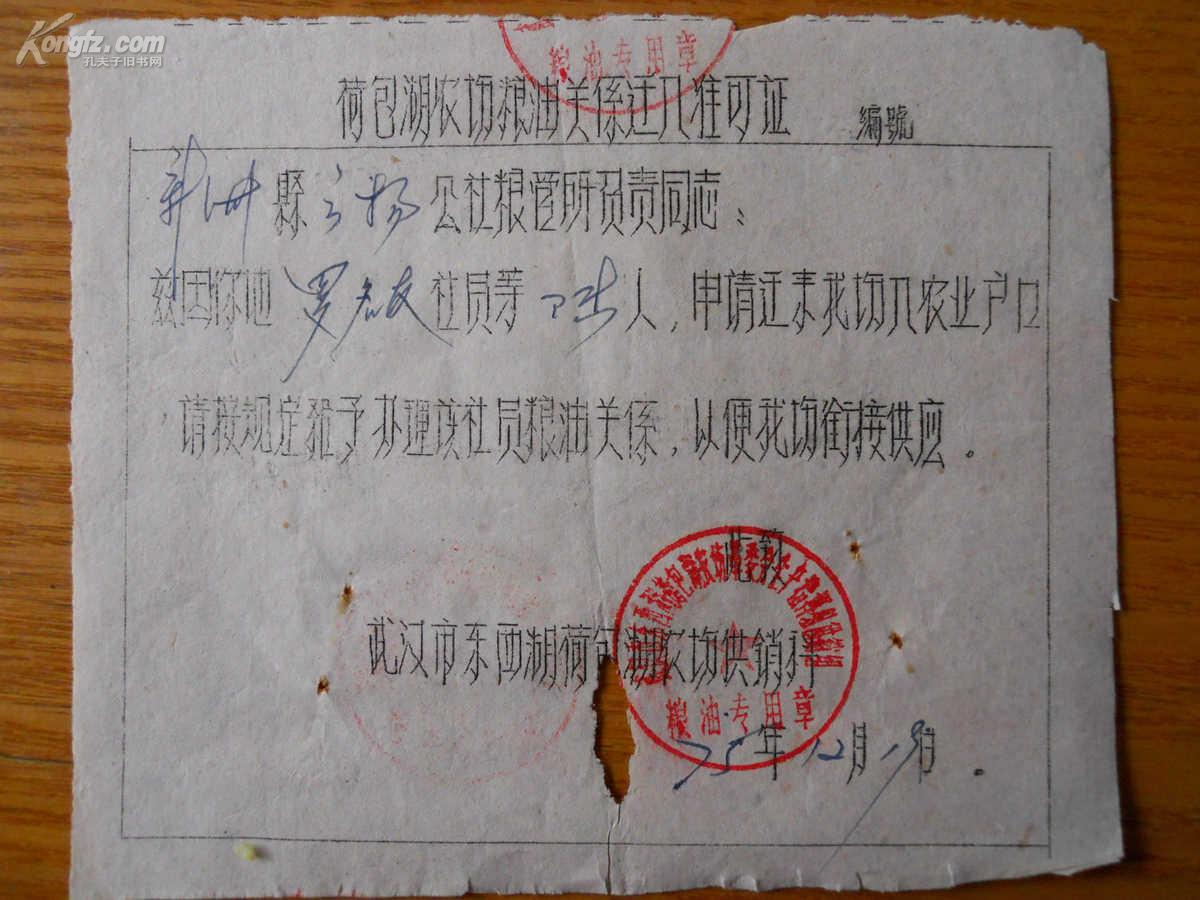 Kongfz.com
孔夫子旧书网
粮油专用章
荷包湖农场粮油关係迁入准可证 编號
新洲縣 公社粮管所负责同志：
兹因你地 罗 友 社员等 人，申请迁来我场入农业户口
，请按规定准予办理该社员粮油关係，以便我场衔接供应。
此致
武汉市东西湖荷包湖农场供销科
粮油专用章
75年12月 日。